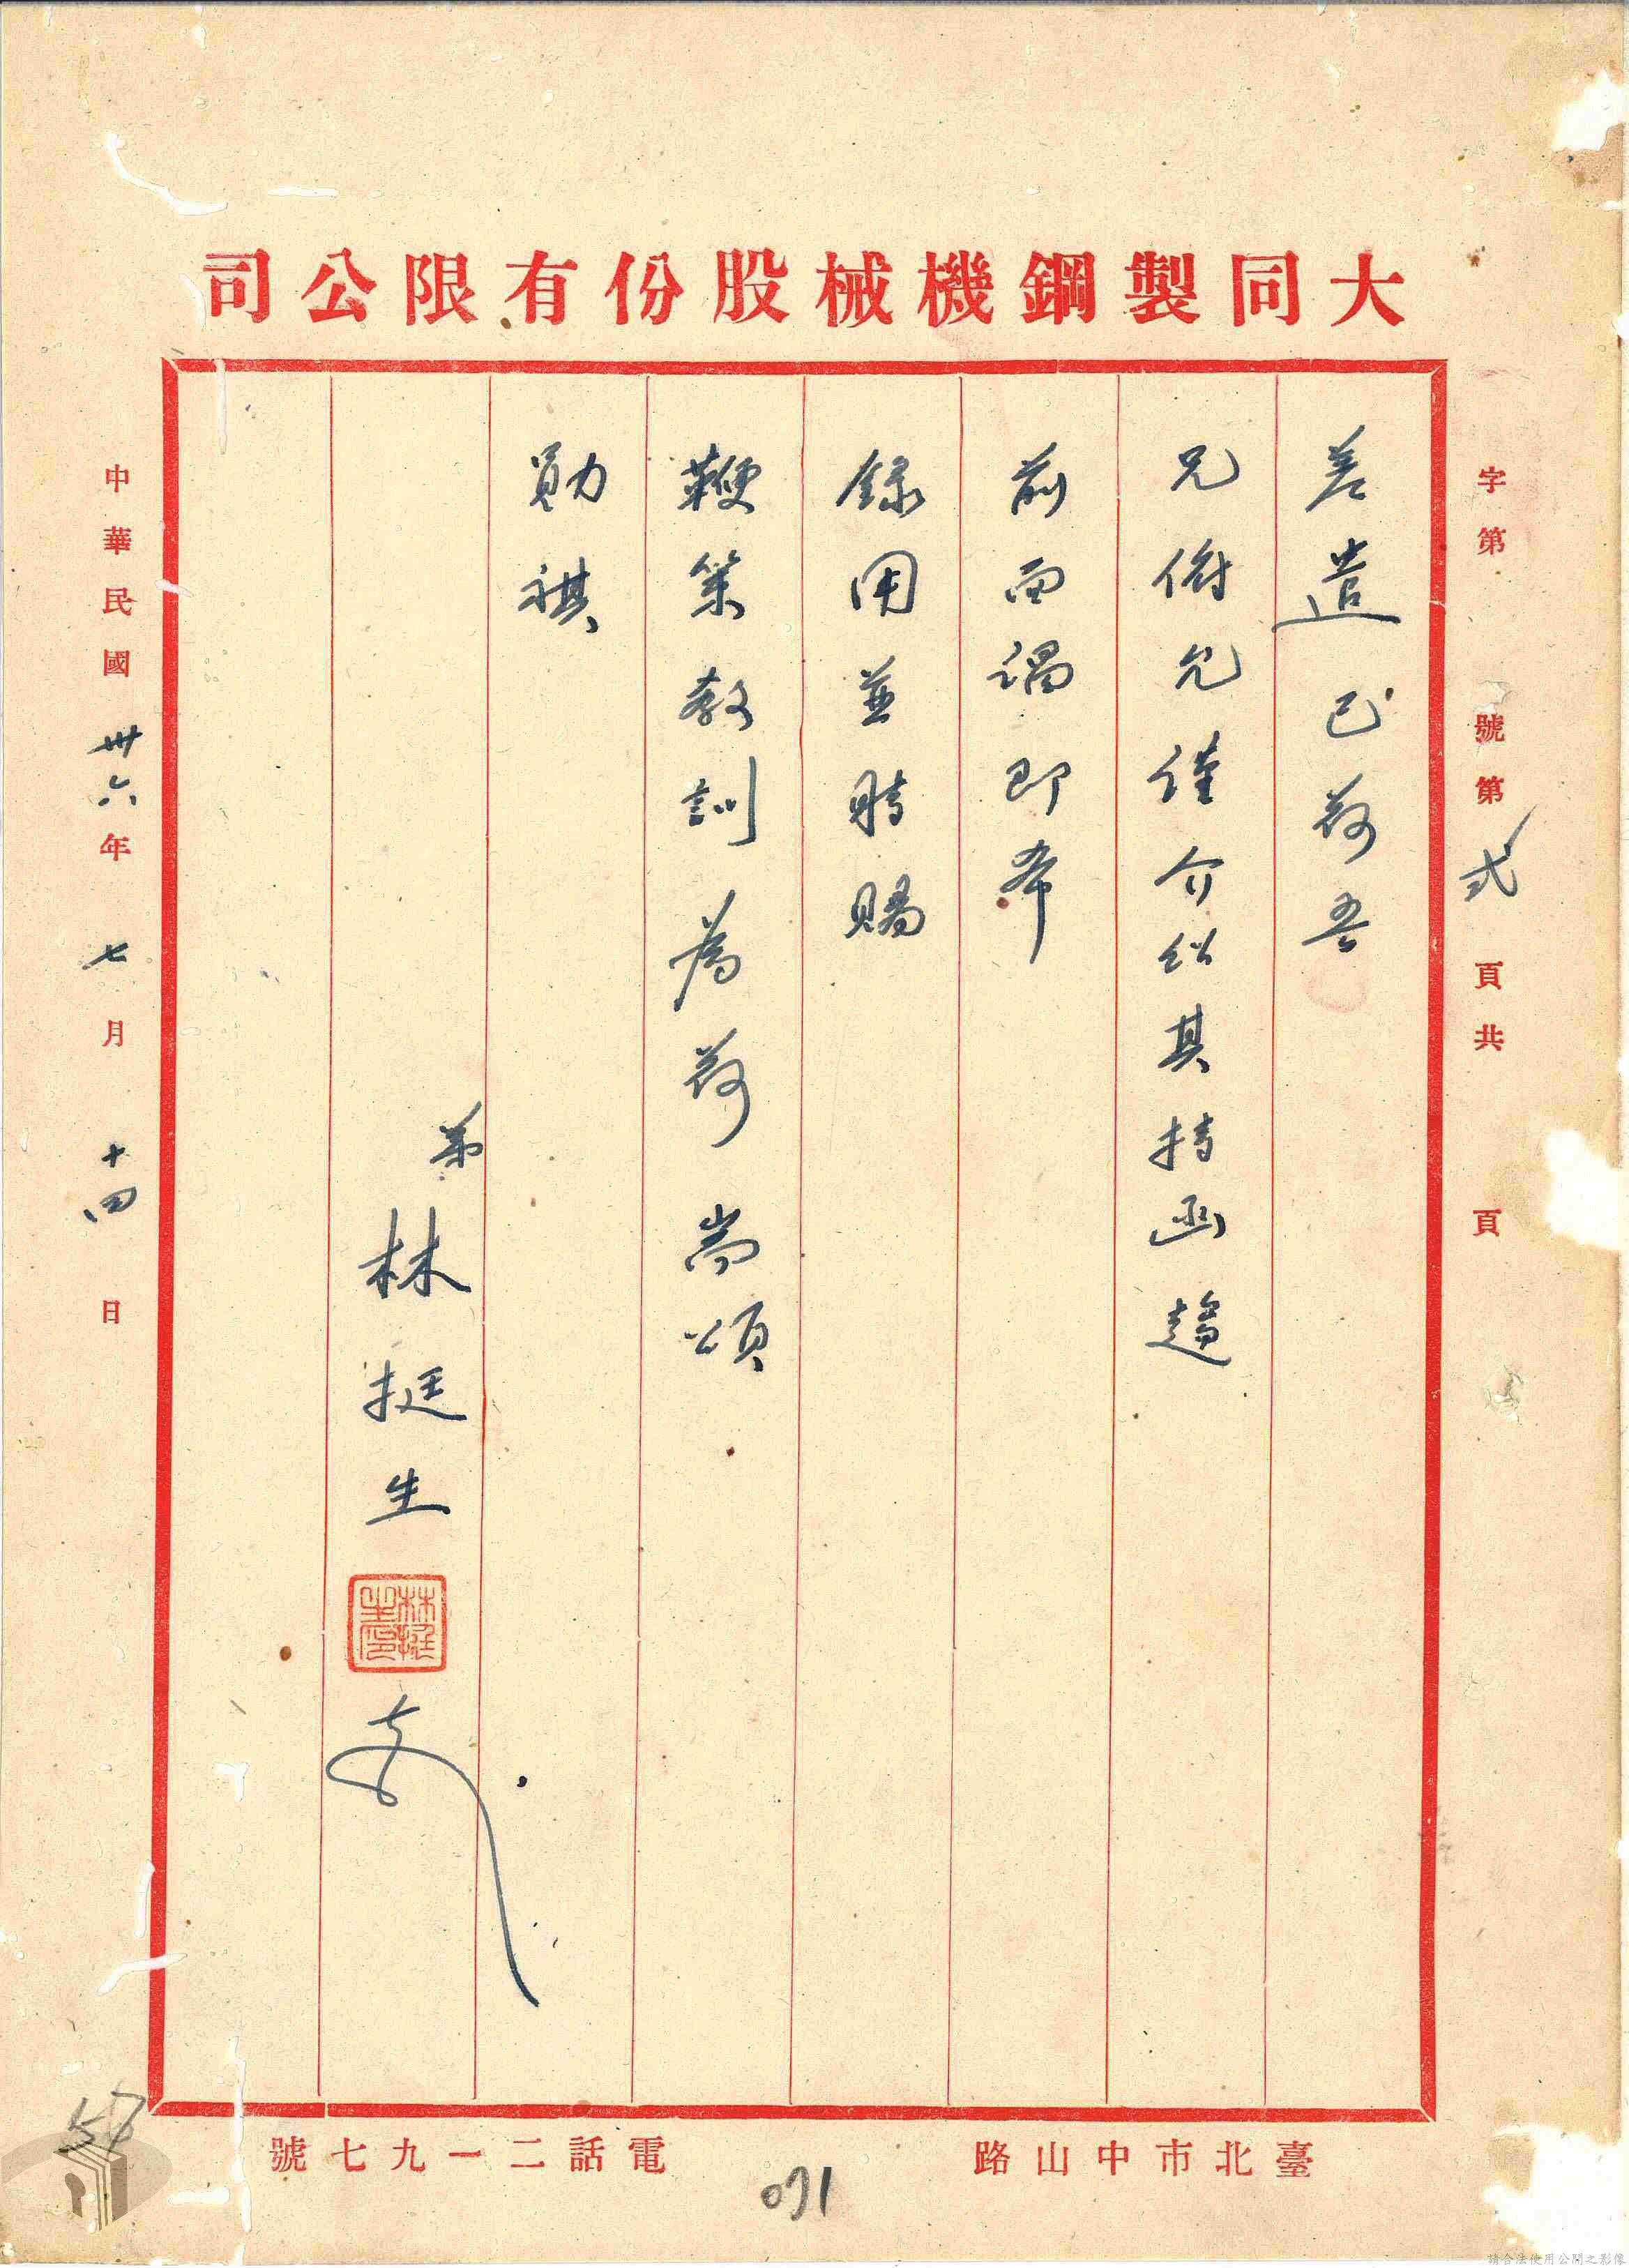 大同製鋼機械股份有限公司
字第 號第弍頁共 頁
差遣已荷吾
兄俯允謹介紹其持函趨
前面謁即希
錄用並時賜
鞭策教訓為荷耑頌
勛祺
弟
林挺生
林挺生印
中華民國卅六年七月十四日
臺北市中山路
電話二一九七號
071
58
請合法使用公開之影像